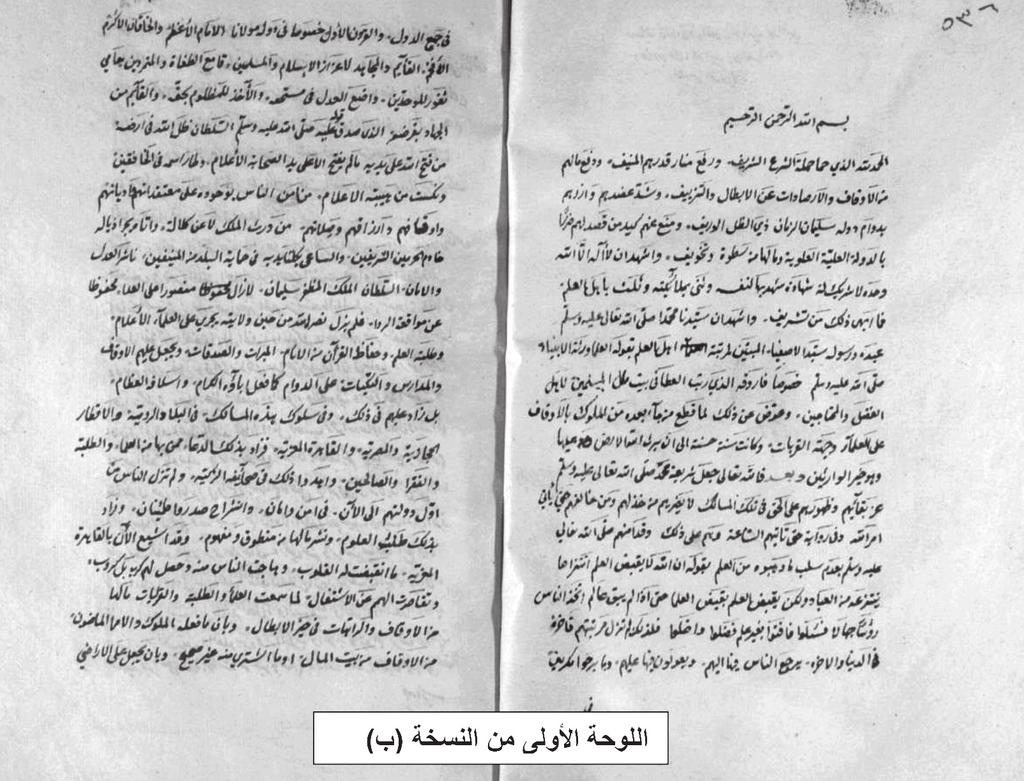 ٥٣٦
بسم الله الرحمن الرحيم
الحمد لله الذي حما حملة الشرع الشريف ورفع منار قدرهم المنيف ودفع عنهم
من الاوقاف والارصادات عن الابطال والتزييف وشد عضدهم وازرهم
بدوام دولة سليمان الزمان ذي الظل الوريف ومنع عنهم كيد من قصدهم
بالدولة العلية العلوية ومالها من سطوة وتخويف واشهد ان لا اله الا الله
وحده لا شريك له شهادة شهد بها لنفسه وثنى بملائكته وثلث باهل العلم
فما ابهى ذلك من تشريف واشهد ان سيدنا محمدا صلى الله تعالى عليه وسلم
عبده ورسوله سيد الاصفياء المبين لمرتبة اهل العلم بقوله العلماء ورثة الانبياء
صلى الله عليه وسلم خصوصا فاروقه الذي رتب العطا في بيت مال المسلمين لاهل
الفضل والمحتاجين وعوض عن ذلك لما قطع من جاء بعده من الملوك بالاوقاف
على العلماء وجهة القربات وكانت سنة حسنة الى ان يرث الله الارض ومن عليها
وهو خير الوارثين وبعد فالله تعالى جعل شريعة محمد صلى الله تعالى عليه وسلم
وظهورهم على الحق في تلك المسالك لا يضرهم من خذلهم ومن خالفهم حتى ياتي
امر الله وفي رواية حتى تاتيهم الساعة وهم على ذلك
عليه وسلم بعدم سلب ما وهبوه من العلم بقوله ان الله لا يقبض العلم انتزاعا
ينتزعه من العباد ولكن يقبض العلم بقبض العلما حتى اذا لم يبق عالم اتخذ الناس
رؤسا جهالا فسئلوا فافتوا بغير علم فضلوا واضلوا فلذلك لم تزل حرمتهم فاخرة
في الدنيا والاخرة يرجع الناس فيها اليهم ويعولون فيها عليهم وما برحوا مكرمين
في جميع الدول والقرون الاول خصوصا في دولة مولانا الامام الاعظم والخاقان الاكرم
الافخم القايم والمجاهد لاعزاز الاسلام والمسلمين قامع الطغاة والمتمردين حامي
ثغور الموحدين واضع العدل في مستحقه والآخذ للمظلوم بحقه والقايم من
الجهاد بفرضه الذي صدق عليه قوله صلى الله عليه وسلم السلطان ظل الله في ارضه
من فتح الله على يديه مالم يفتح الا على يد الصحابة الاعلام وطار اسمه في الخافقين
ونكست من هيبته الاعلام من امن الناس بوجوده على معتقداتهم واديانهم
واوقافهم وارزاقهم وصلاتهم من ورث الملك لا عن كلالة واتاه يجر اذياله
خادم الحرمين الشريفين والساعي بكلتا يديه في حماية البلد من المنيفين ناشر العدل
والامان السلطان الملك المظفر سليمان لا زال منصورا على العدا محفوظا
عن موافقة الردا فلم يزل نصره الله من حين ولايته يجري على العلماء الاعلام
وطلبة العلم وحفاظ القرآن من الانام المبرات والصدقات ويجعل عليهم الاوقاف
والمدارس والتكيات على الدوام كما فعل باؤه الكرام واسلافه العظام
بل زاد عليهم في ذلك وفي سلوك هذه المسالك في البلاد الرومية والاقطار
الحجازية والمصرية والقاهرة المعزية فزاد بذلك الدعا ممن بها من العلماء والطلبة
والفقرا والصالحين واهدوا ذلك في صحايفه الزكية ولم تزل الناس من
اول دولتهم الى الآن في امن وامان وانشراح صدر واطمئنان وزاد
بذلك طلب العلوم ونشر مالها من منطوق ومفهوم وقد اشيع الآن بالقاهرة
المعزية ما انقبضت له القلوب وهاجت الناس منه وحصل لهم كرب بل كروب
وتقاصرت الهمم عن الاشتغال لما سمعت العلماء والطلبة والتكيات مالها
من الاوقاف والمرتبات في حيز الابطال وبان ما فعله الملوك والامراء الماضون
من الاوقاف من بيت المال او ما اشترى منه غير صحيح وبان يجعل على الاراضي
اللوحة الأولى من النسخة (ب)